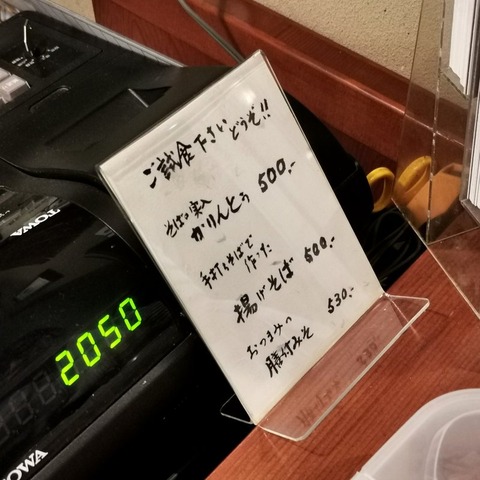 ご試食下さいどうぞ!!
そばの実入
かりんとう 500.-
手打ちそばで
作った
揚げそば 500.-
おつまみの 530.-
勝竹みそ
TOWA
2050
TOWA